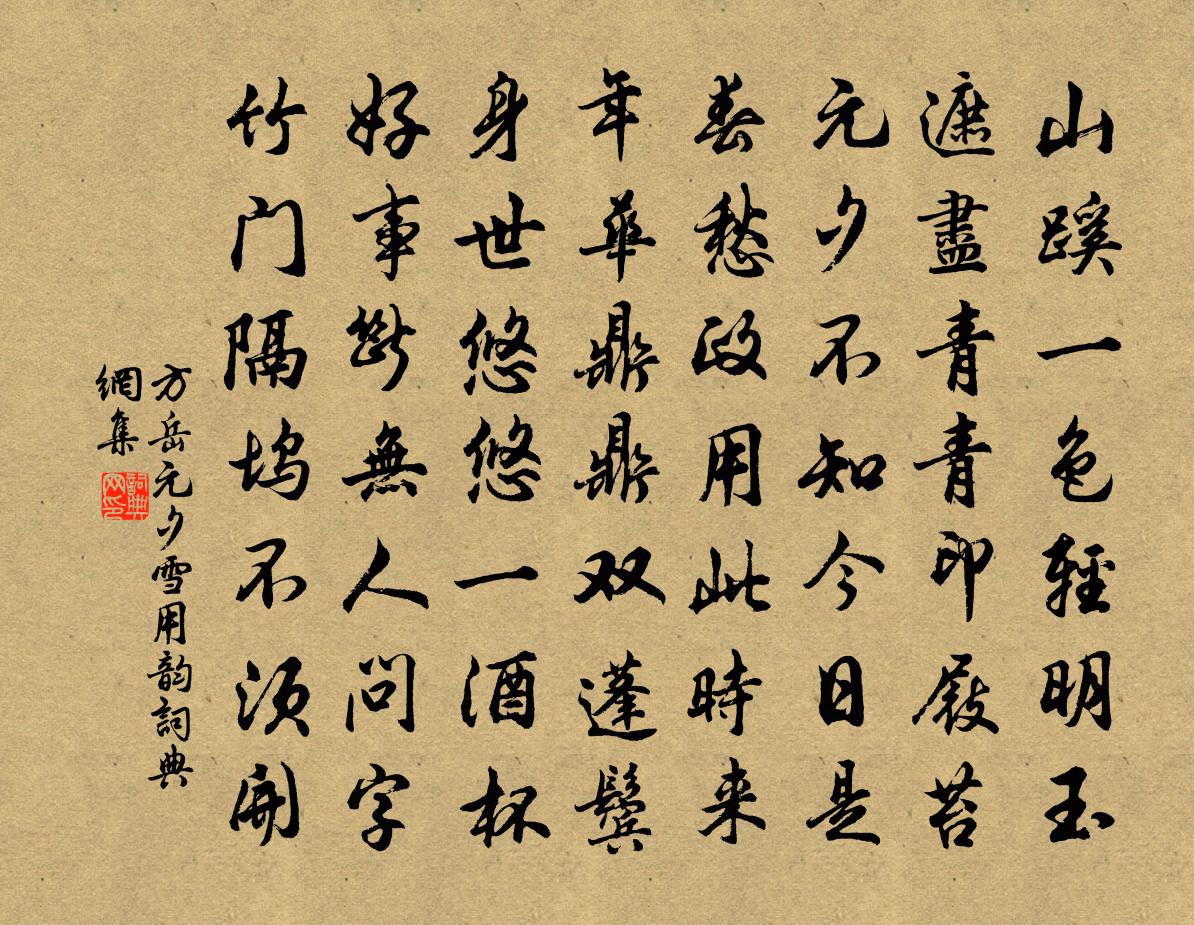 山蹊一色輕明玉
遮盡青青印屐苔
元夕不知今日是
春愁政用此時来
年華鼎鼎双蓬鬢
身世悠悠一酒杯
好事斷無人問字
竹门隔坞不须開
方岳元夕雪用韵詞典
網集
詞典
网印